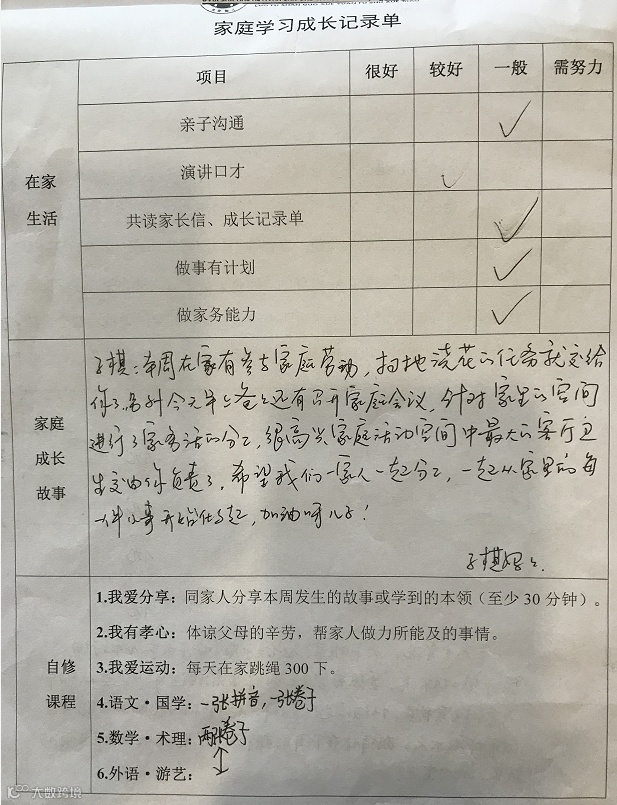 家庭学习成长记录单
项目 很好 较好 一般 需努力
在家生活
亲子沟通 ✓
演讲口才 ✓
共读家长信、成长记录单 ✓
做事有计划 ✓
做家务能力 ✓
家庭成长故事
子棋：本周在家有参与家庭劳动，扫地浇花的任务就交给
你了。另外今天早上爸爸还有召开家庭会议，针对家里的空间
进行了家务活的分工，很高兴家庭活动空间中最大的客厅卫
生交由你负责了，希望我们一家人一起分工，一起从家里的每
一件小事开始做起，加油呀儿子！
子棋妈妈
自修课程
1.我爱分享：同家人分享本周发生的故事或学到的本领（至少 30 分钟）。
2.我有孝心：体谅父母的辛劳，帮家人做力所能及的事情。
3.我爱运动：每天在家跳绳 300 下。
4.语文·国学：一张拼音，一张卷子
5.数学·术理：两张卷子
6.外语·游艺：
大数跨境